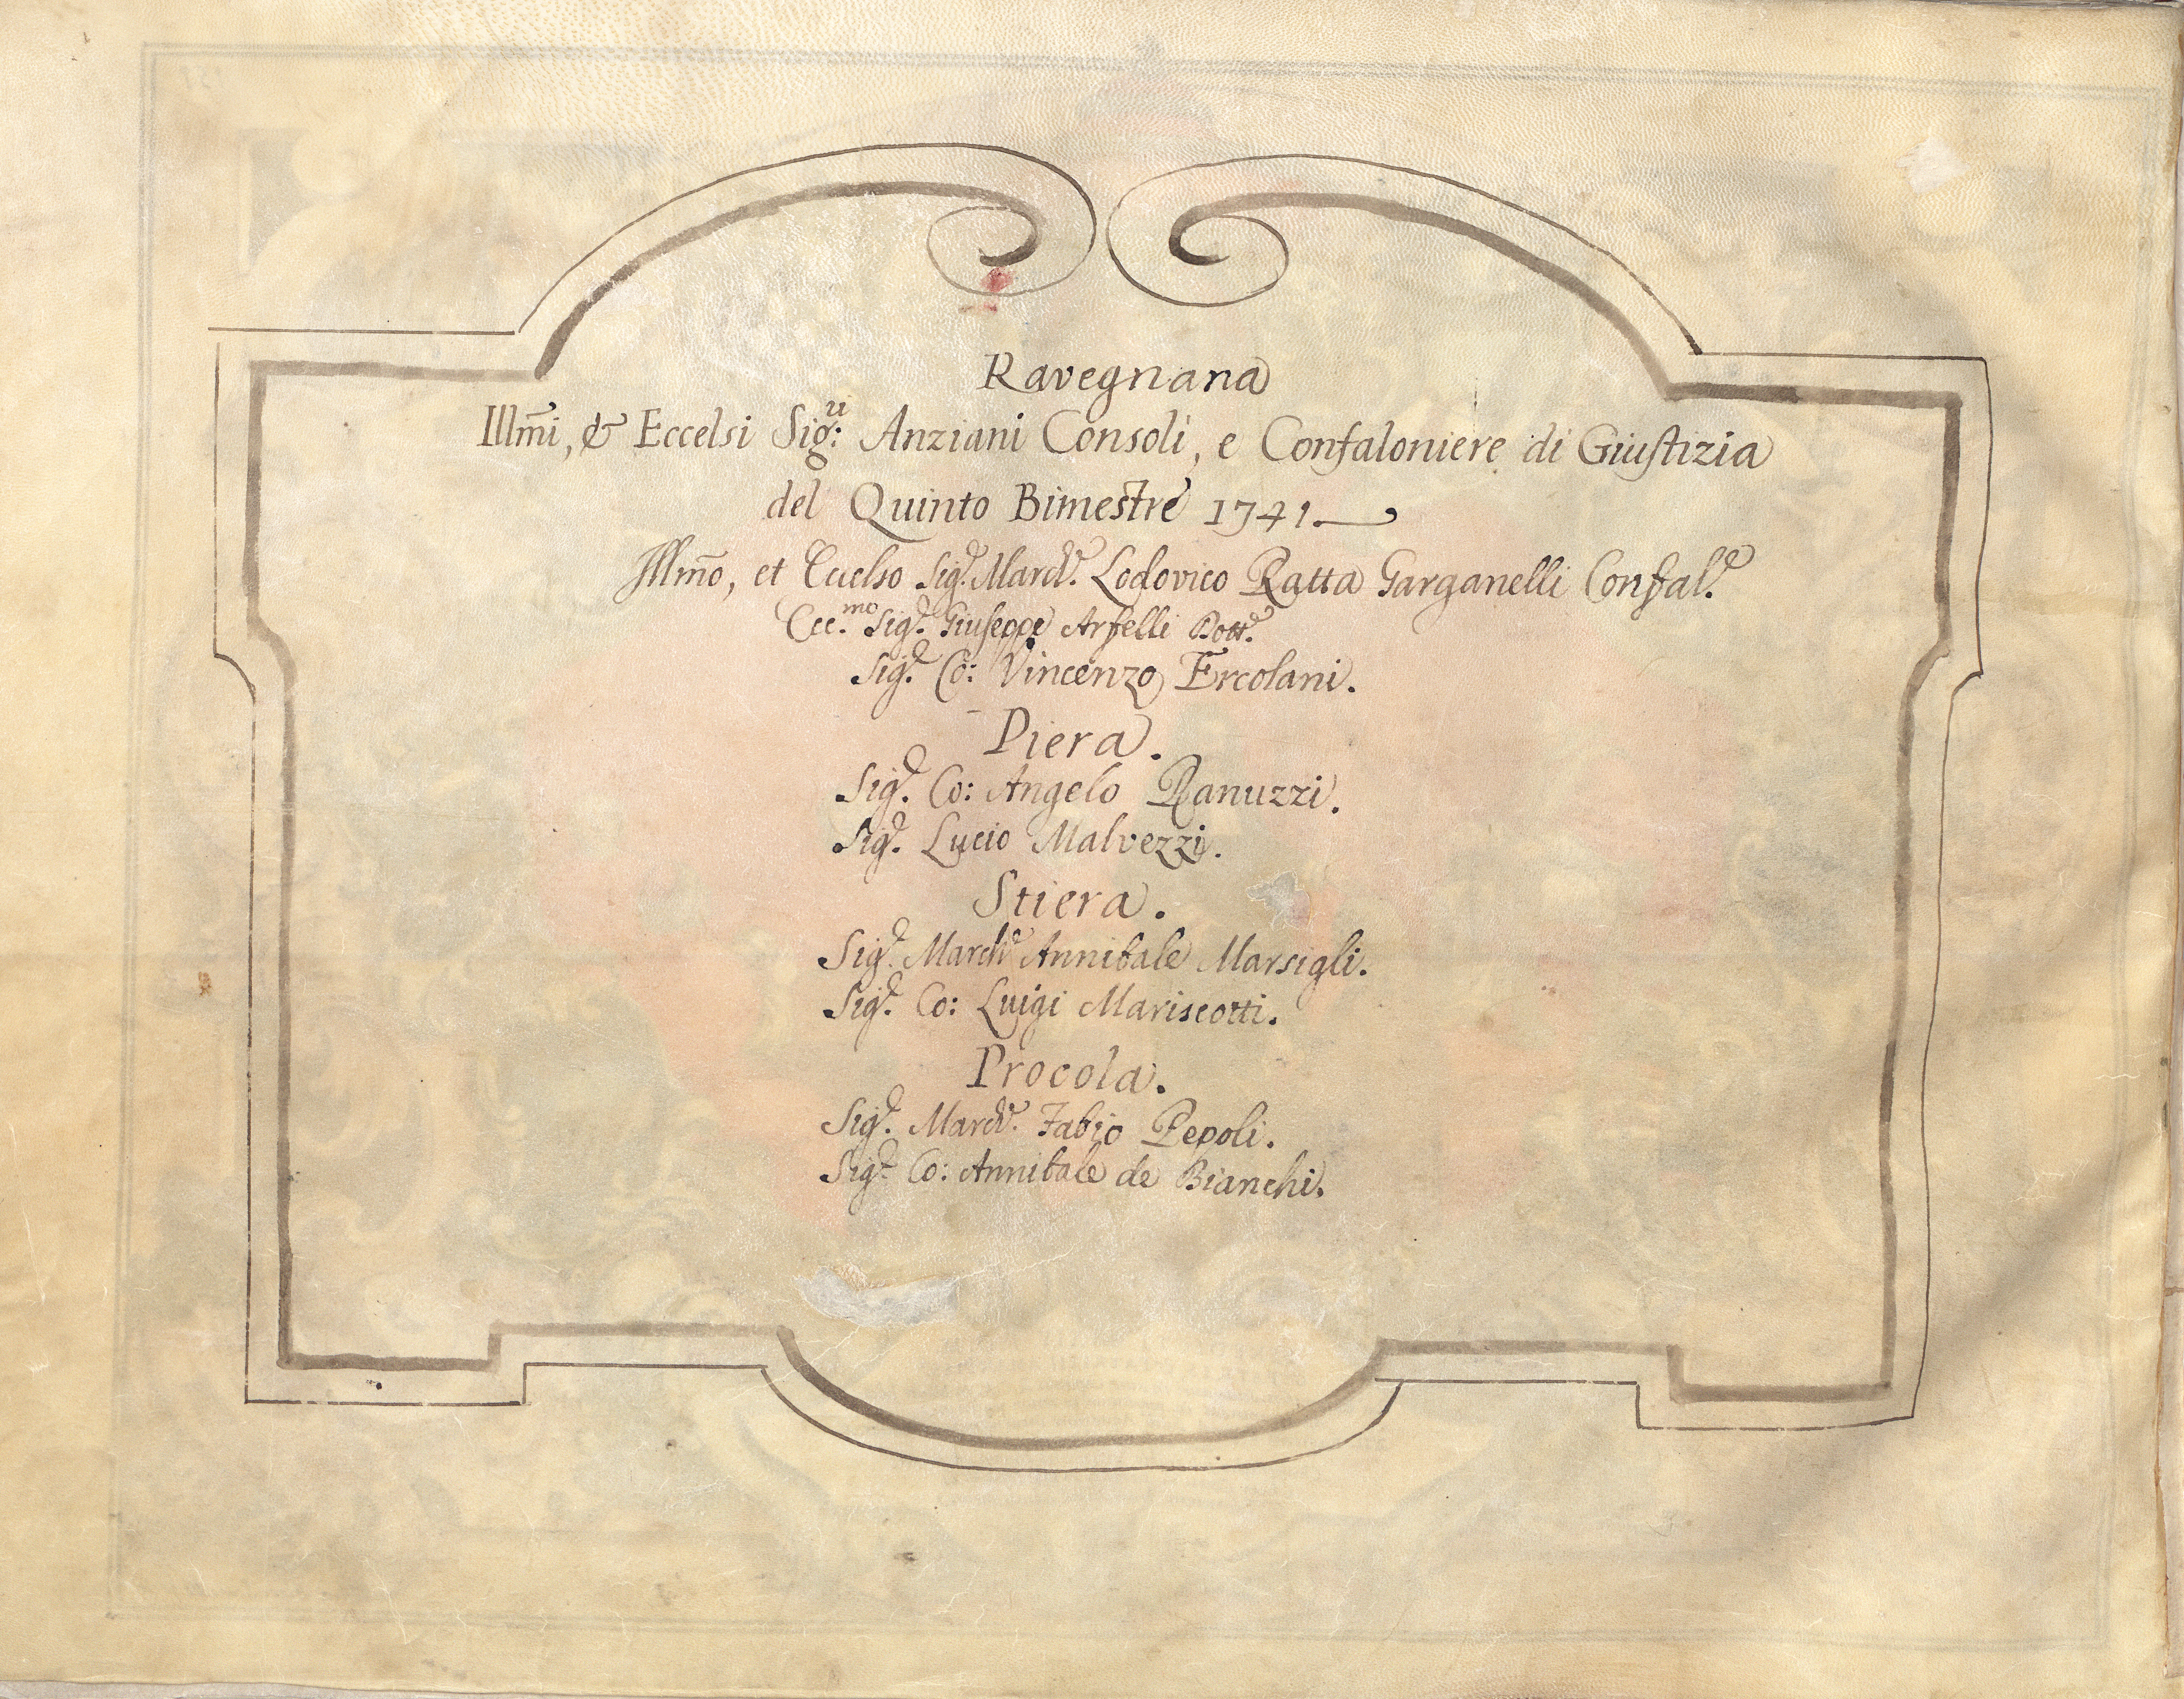 Ravegnana
Illm̃i, & Eccelsi Sig:ri Anziani Consoli, e Confaloniere di Giustizia
del Quinto Bimestre 1741.
Illm̃o, et Eccelso Sig.r March.e Lodovico Ratta Garganelli Confal.e
Ecc.mo Sig.r Giuseppe Arfelli Dott.e
Sig.r Co: Vincenzo Ercolani.
Piera.
Sig.r Co: Angelo Ranuzzi.
Sig.r Lucio Malvezzi.
Stiera.
Sig.r March.e Annibale Marsigli.
Sig.r Co: Luigi Mariscotti.
Procola.
Sig.r March.e Fabio Pepoli.
Sig.r Co: Annibale de Bianchi.